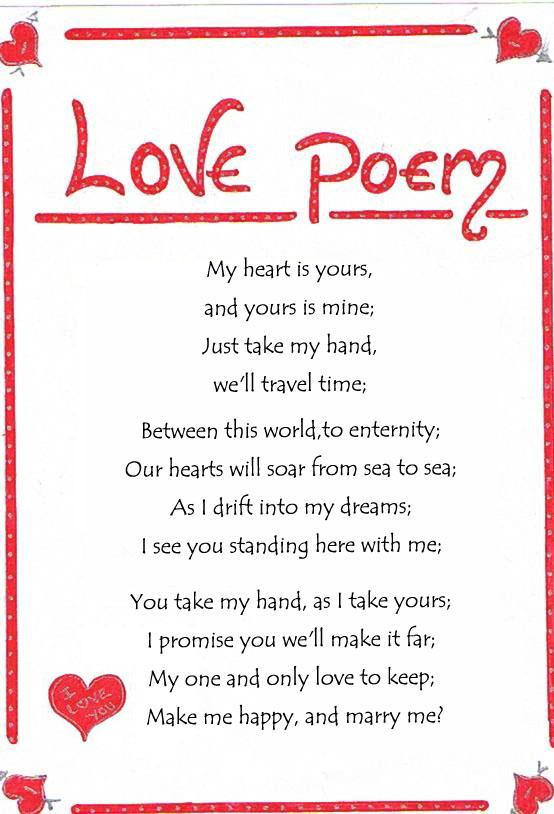 LOVE POEM
My heart is yours,
and yours is mine;
Just take my hand,
we'll travel time;
Between this world,to enternity;
Our hearts will soar from sea to sea;
As I drift into my dreams;
I see you standing here with me;
You take my hand, as I take yours;
I promise you we'll make it far;
My one and only love to keep;
Make me happy, and marry me?
I
LOVE
YOU